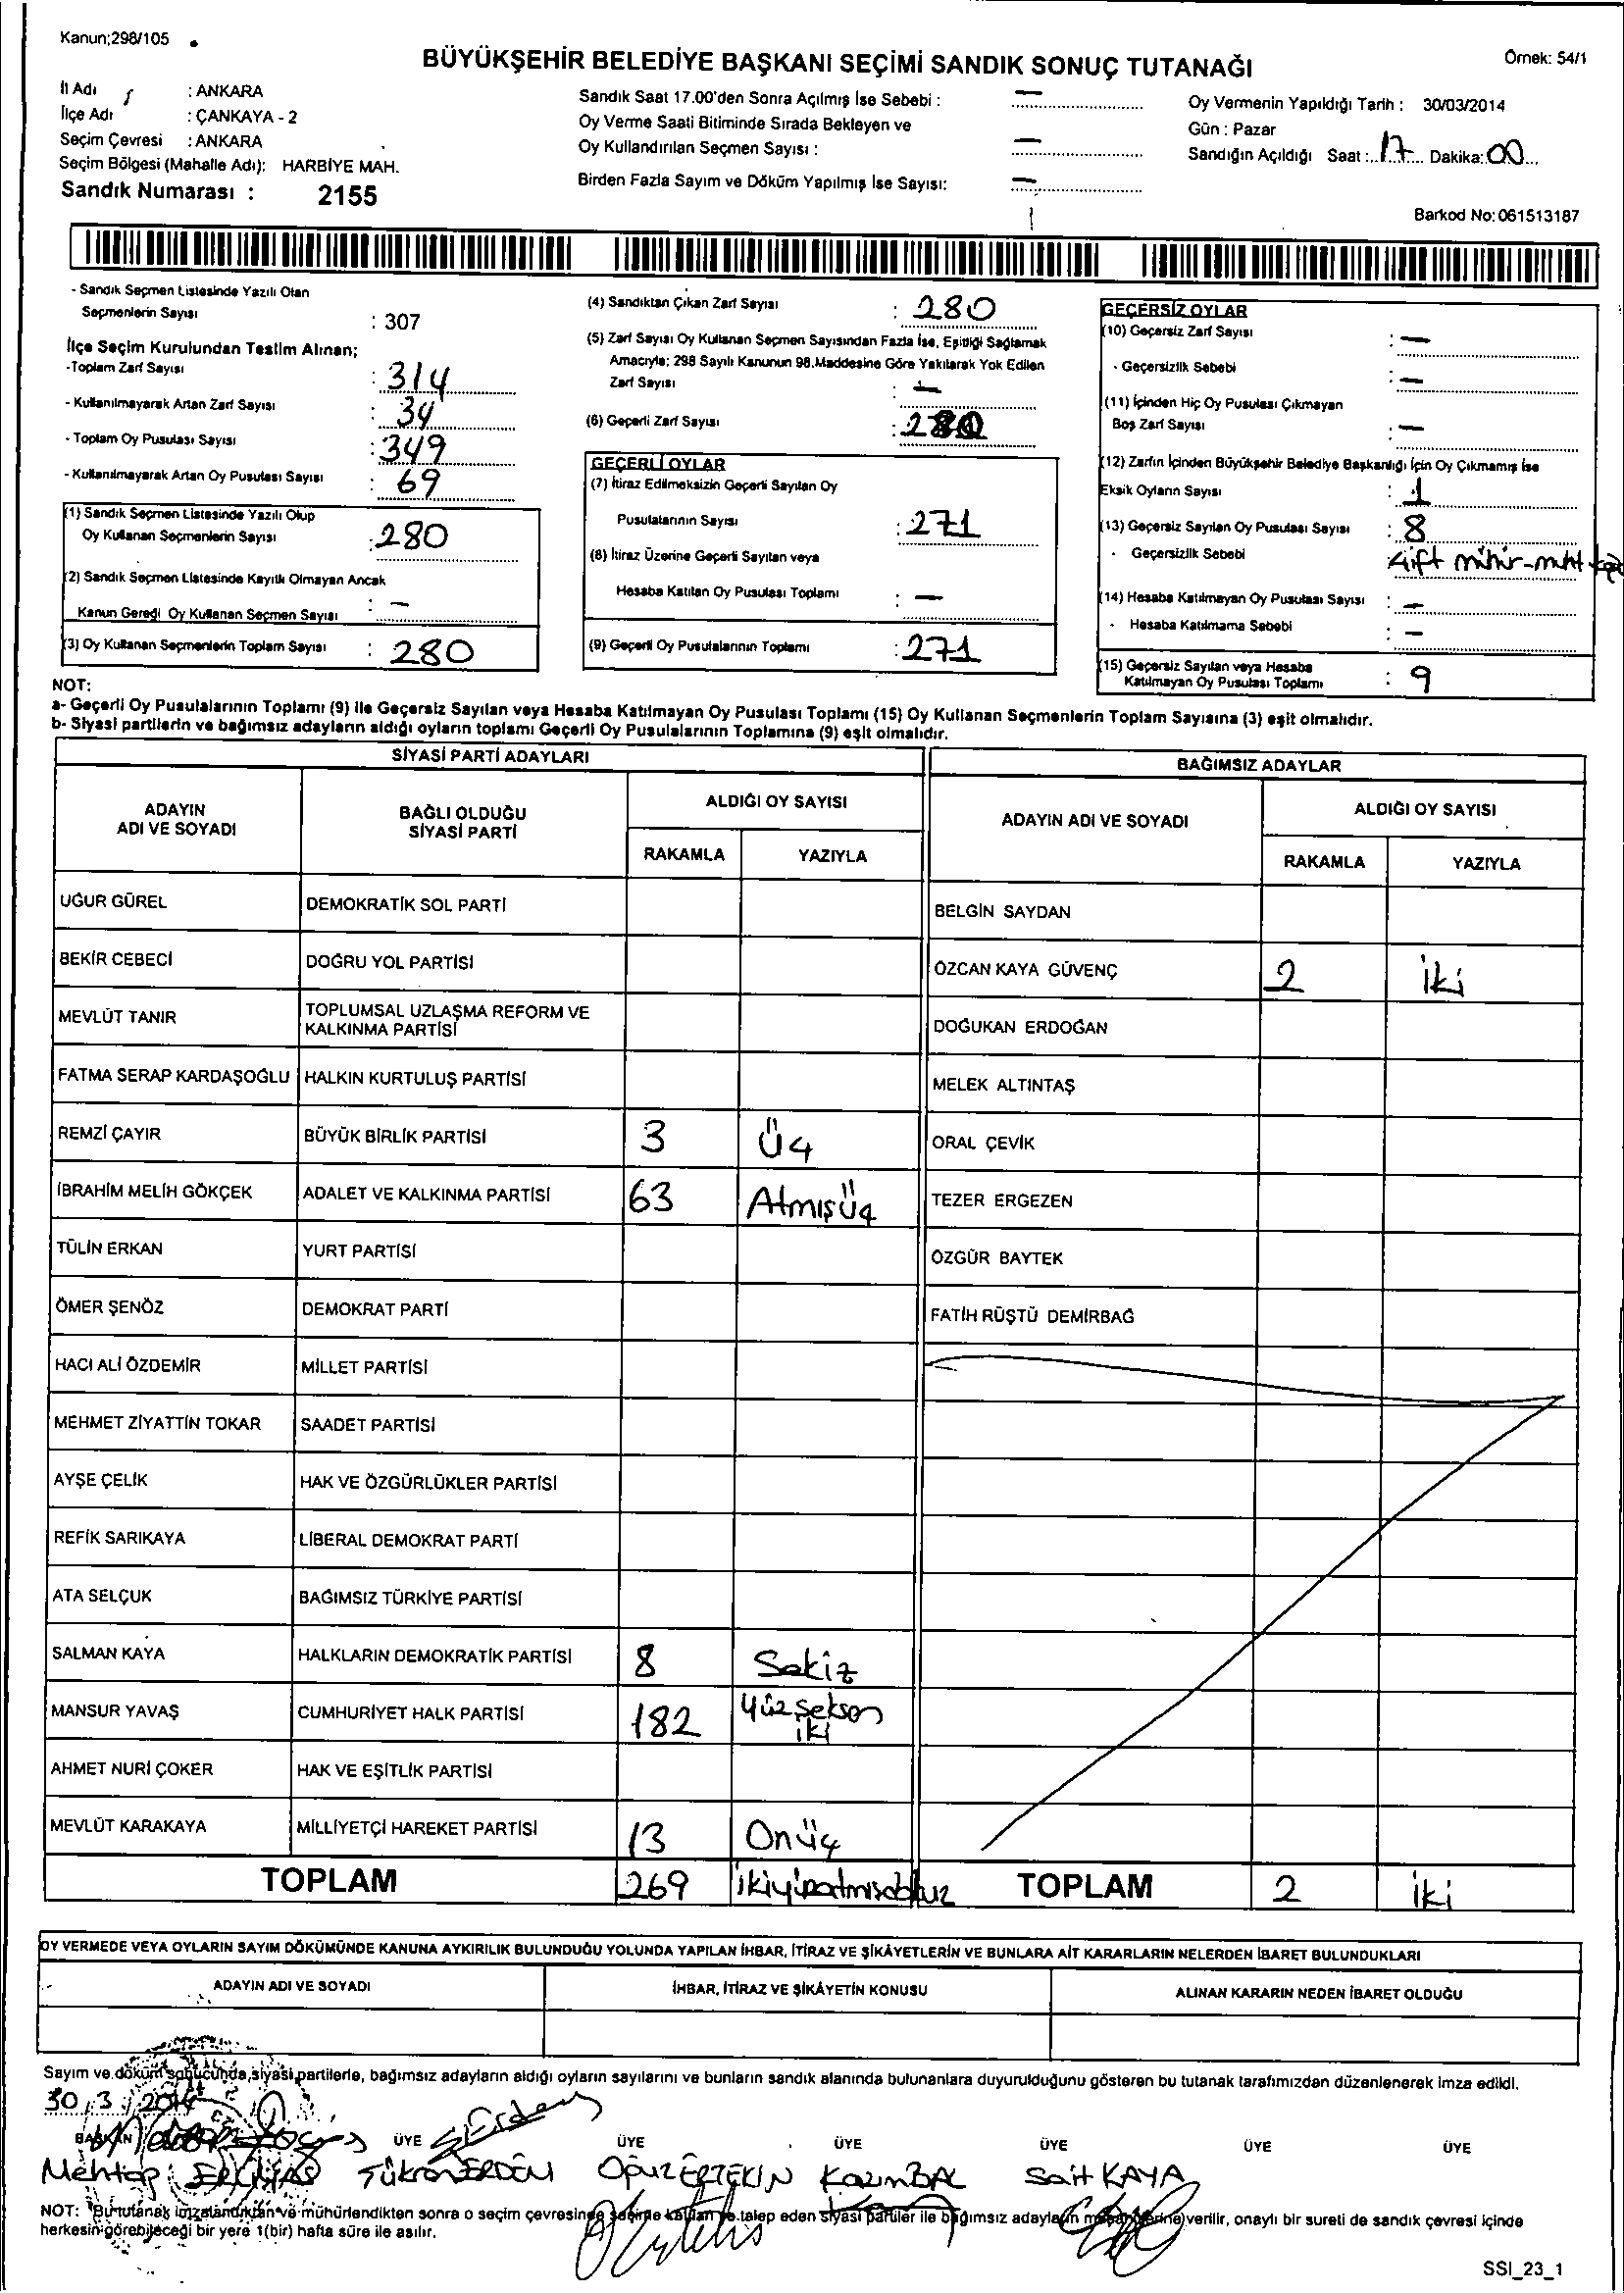 Kanun;298/105
BÜYÜKŞEHİR BELEDİYE BAŞKANI SEÇİMİ SANDIK SONUÇ TUTANAĞI
Örnek: 54/1
İl Adı : ANKARA
İlçe Adı : ÇANKAYA - 2
Seçim Çevresi : ANKARA
Seçim Bölgesi (Mahalle Adı): HARBİYE MAH.
Sandık Numarası : 2155
Sandık Saat 17.00'den Sonra Açılmış İse Sebebi : —
Oy Verme Saati Bitiminde Sırada Bekleyen ve
Oy Kullandırılan Seçmen Sayısı : —
Birden Fazla Sayım ve Döküm Yapılmış İse Sayısı: —
Oy Vermenin Yapıldığı Tarih : 30/03/2014
Gün : Pazar
Sandığın Açıldığı Saat :..17.... Dakika:.00...
Barkod No: 061513187
- Sandık Seçmen Listesinde Yazılı Olan
Seçmenlerin Sayısı : 307
İlçe Seçim Kurulundan Teslim Alınan;
-Toplam Zarf Sayısı : 314
- Kullanılmayarak Artan Zarf Sayısı : 34
- Toplam Oy Pusulası Sayısı : 349
- Kullanılmayarak Artan Oy Pusulası Sayısı : 69
(1) Sandık Seçmen Listesinde Yazılı Olup
Oy Kullanan Seçmenlerin Sayısı : 280
(2) Sandık Seçmen Listesinde Kayıtlı Olmayan Ancak
Kanun Gereği Oy Kullanan Seçmen Sayısı : —
(3) Oy Kullanan Seçmenlerin Toplam Sayısı : 280
(4) Sandıktan Çıkan Zarf Sayısı : 280
(5) Zarf Sayısı Oy Kullanan Seçmen Sayısından Fazla İse, Eşitliği Sağlamak
Amacıyla; 298 Sayılı Kanunun 98.Maddesine Göre Yakılarak Yok Edilen
Zarf Sayısı : —
(6) Geçerli Zarf Sayısı : 280
GEÇERLİ OYLAR
(7) İtiraz Edilmeksizin Geçerli Sayılan Oy
Pusulalarının Sayısı : 271
(8) İtiraz Üzerine Geçerli Sayılan veya
Hesaba Katılan Oy Pusulası Toplamı : —
(9) Geçerli Oy Pusulalarının Toplamı : 271
GEÇERSİZ OYLAR
(10) Geçersiz Zarf Sayısı : —
- Geçersizlik Sebebi : —
(11) İçinden Hiç Oy Pusulası Çıkmayan
Boş Zarf Sayısı : —
(12) Zarfın İçinden Büyükşehir Belediye Başkanlığı İçin Oy Çıkmamış İse
Eksik Oyların Sayısı : 1
(13) Geçersiz Sayılan Oy Pusulası Sayısı : 8
- Geçersizlik Sebebi Çift mühür-müht
(14) Hesaba Katılmayan Oy Pusulası Sayısı : —
- Hesaba Katılmama Sebebi : —
(15) Geçersiz Sayılan veya Hesaba
Katılmayan Oy Pusulası Toplamı : 9
NOT:
a- Geçerli Oy Pusulalarının Toplamı (9) ile Geçersiz Sayılan veya Hesaba Katılmayan Oy Pusulası Toplamı (15) Oy Kullanan Seçmenlerin Toplam Sayısına (3) eşit olmalıdır.
b- Siyasi partilerin ve bağımsız adayların aldığı oyların toplamı Geçerli Oy Pusulalarının Toplamına (9) eşit olmalıdır.
SİYASİ PARTİ ADAYLARI
ADAYIN ADI VE SOYADI BAĞLI OLDUĞU SİYASİ PARTİ ALDIĞI OY SAYISI
RAKAMLA YAZIYLA
UĞUR GÜREL DEMOKRATİK SOL PARTİ
BEKİR CEBECİ DOĞRU YOL PARTİSİ
MEVLÜT TANIR TOPLUMSAL UZLAŞMA REFORM VE KALKINMA PARTİSİ
FATMA SERAP KARDAŞOĞLU HALKIN KURTULUŞ PARTİSİ
REMZİ ÇAYIR BÜYÜK BİRLİK PARTİSİ 3 Üç
İBRAHİM MELİH GÖKÇEK ADALET VE KALKINMA PARTİSİ 63 Atmışüç
TÜLİN ERKAN YURT PARTİSİ
ÖMER ŞENÖZ DEMOKRAT PARTİ
HACI ALİ ÖZDEMİR MİLLET PARTİSİ
MEHMET ZİYATTİN TOKAR SAADET PARTİSİ
AYŞE ÇELİK HAK VE ÖZGÜRLÜKLER PARTİSİ
REFİK SARIKAYA LİBERAL DEMOKRAT PARTİ
ATA SELÇUK BAĞIMSIZ TÜRKİYE PARTİSİ
SALMAN KAYA HALKLARIN DEMOKRATİK PARTİSİ 8 Sekiz
MANSUR YAVAŞ CUMHURİYET HALK PARTİSİ 182 Yüzseksen iki
AHMET NURİ ÇOKER HAK VE EŞİTLİK PARTİSİ
MEVLÜT KARAKAYA MİLLİYETÇİ HAREKET PARTİSİ 13 Onüç
TOPLAM 269 ikiyüzatmışdokuz
BAĞIMSIZ ADAYLAR
ADAYIN ADI VE SOYADI ALDIĞI OY SAYISI
RAKAMLA YAZIYLA
BELGİN SAYDAN
ÖZCAN KAYA GÜVENÇ 2 iki
DOĞUKAN ERDOĞAN
MELEK ALTINTAŞ
ORAL ÇEVİK
TEZER ERGEZEN
ÖZGÜR BAYTEK
FATİH RÜŞTÜ DEMİRBAĞ
TOPLAM 2 iki
OY VERMEDE VEYA OYLARIN SAYIM DÖKÜMÜNDE KANUNA AYKIRILIK BULUNDUĞU YOLUNDA YAPILAN İHBAR, İTİRAZ VE ŞİKÂYETLERİN VE BUNLARA AİT KARARLARIN NELERDEN İBARET BULUNDUKLARI
ADAYIN ADI VE SOYADI İHBAR, İTİRAZ VE ŞİKÂYETİN KONUSU ALINAN KARARIN NEDEN İBARET OLDUĞU
Sayım ve döküm sonucunda, siyasi partilerle, bağımsız adayların aldığı oyların sayılarını ve bunların sandık alanında bulunanlara duyurulduğunu gösteren bu tutanak tarafımızdan düzenlenerek imza edildi.
30 / 3 / 2014
BAŞKAN ÜYE ÜYE ÜYE ÜYE ÜYE ÜYE
Ş.Erdem
Mehtap Şükran ERDEM Oğuz ERTEKİN Kazım BAL Sait KAYA
NOT: Bu tutanak imzalandıktan ve mühürlendikten sonra o seçim çevresinde seçime katılan ve talep eden siyasi partiler ile bağımsız adayların müşahitlerine verilir, onaylı bir sureti de sandık çevresi içinde
herkesin görebileceği bir yere 1(bir) hafta süre ile asılır.
SSI_23_1